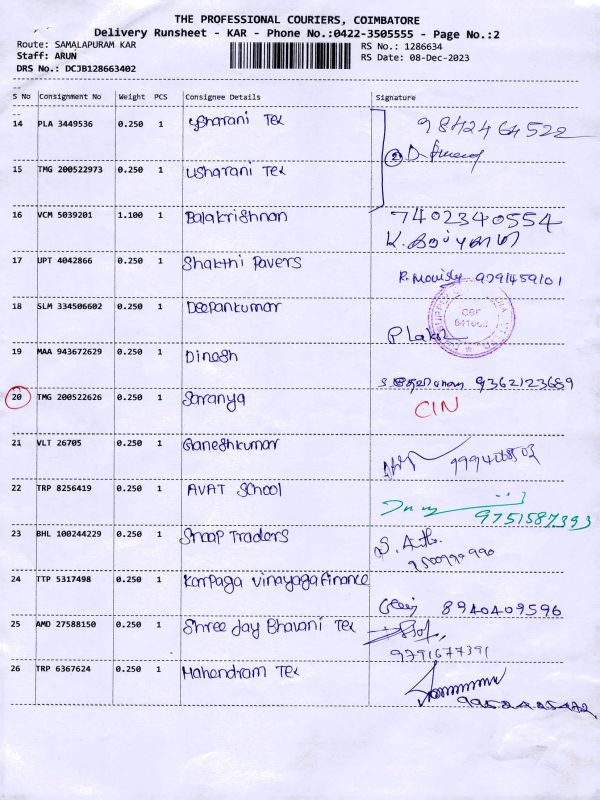 THE PROFESSIONAL COURIERS, COIMBATORE
Delivery Runsheet - KAR - Phone No.:0422-3505555 - Page No.:2
Route: SAMALAPURAM KAR RS No.: 1286634
Staff: ARUN RS Date: 08-Dec-2023
DRS No.: DCJB128663402
S No Consignment No Weight PCS Consignee Details Signature
14 PLA 3449536 0.250 1 Usharani Tex 9842464522
15 TMG 200522973 0.250 1 Usharani Tex
16 VCM 5039201 1.100 1 Balakrishnan 7402340554
17 UPT 4042866 0.250 1 Shakthi Pavers 9791459101
18 SLM 334506602 0.250 1 Deepankumar
19 MAA 943672629 0.250 1 Dinesh
9362123689
20 TMG 200522626 0.250 1 Saranya CIN
21 VLT 26705 0.250 1 Ganeshkumar
22 TRP 8256419 0.250 1 AVAT School
9751587393
23 BHL 100244229 0.250 1 Shaap Traders
24 TTP 5317498 0.250 1 Karpaga vinayaga finance
8940409596
25 AMD 27588150 0.250 1 Shree Jay Bhavani Tex
9791677391
26 TRP 6367624 0.250 1 Mahendram Tex